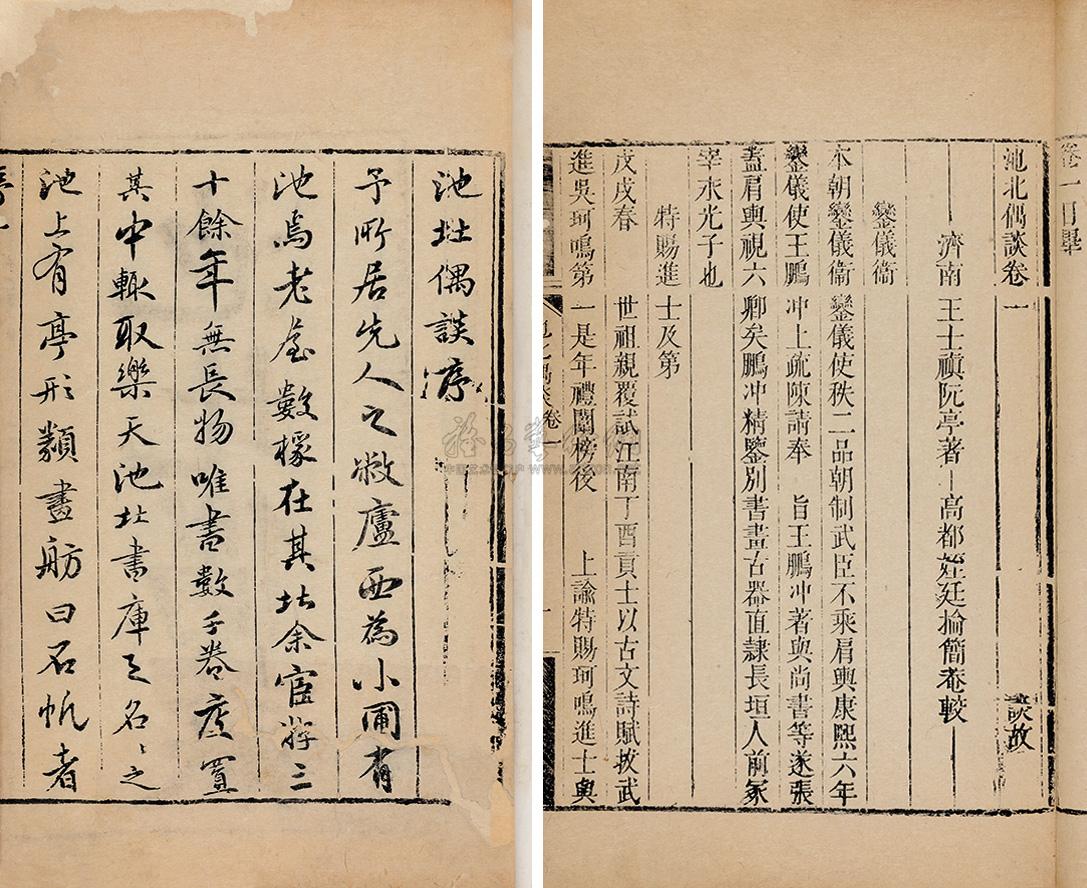 池北偶談序
予所居先人之敝廬西為小圃有
池焉老屋數椽在其北余宦游三
十餘年無長物唯書數千卷庋置
其中輒取樂天池北書庫之名〻之
池上有亭形類畫舫曰石帆者
卷一目畢
池北偶談卷一 談故
濟南王士禛阮亭著 高都姪廷掄簡菴較
鑾儀衛
本朝鑾儀衛鑾儀使秩二品朝制武臣不乘肩輿康熙六年
鑾儀使王鵬冲上疏陳請奉 旨王鵬冲著與尚書等遂張
蓋肩輿視六卿矣鵬冲精鑒別書畫古器直隸長垣人前冢
宰永光子也
特賜進士及第
戊戌春 世祖親覆試江南丁酉貢士以古文詩賦拔武
進吳珂鳴第一是年禮闈榜後 上諭特賜珂鳴進士與